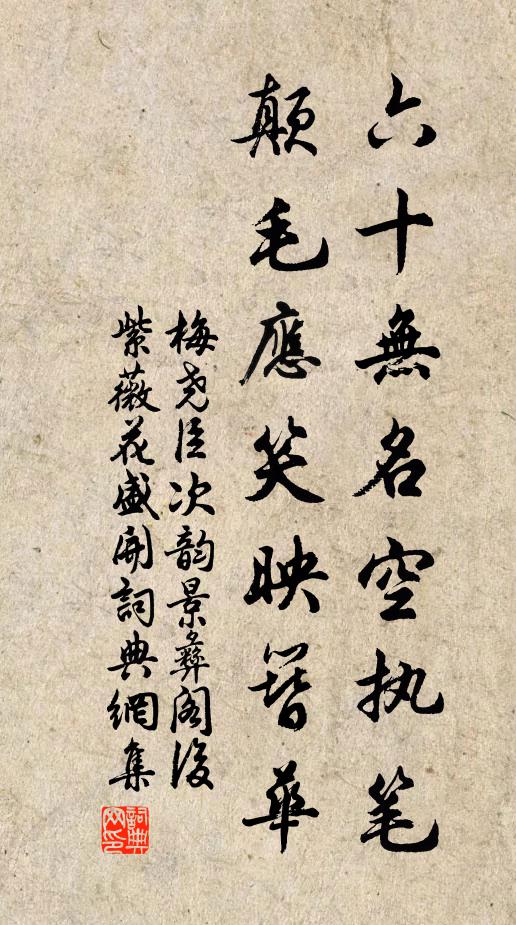 六十無名空执笔
顛毛應笑映簪華
梅尧臣次韵景彝阁後
紫薇花盛開詞典網集
詞典
网印